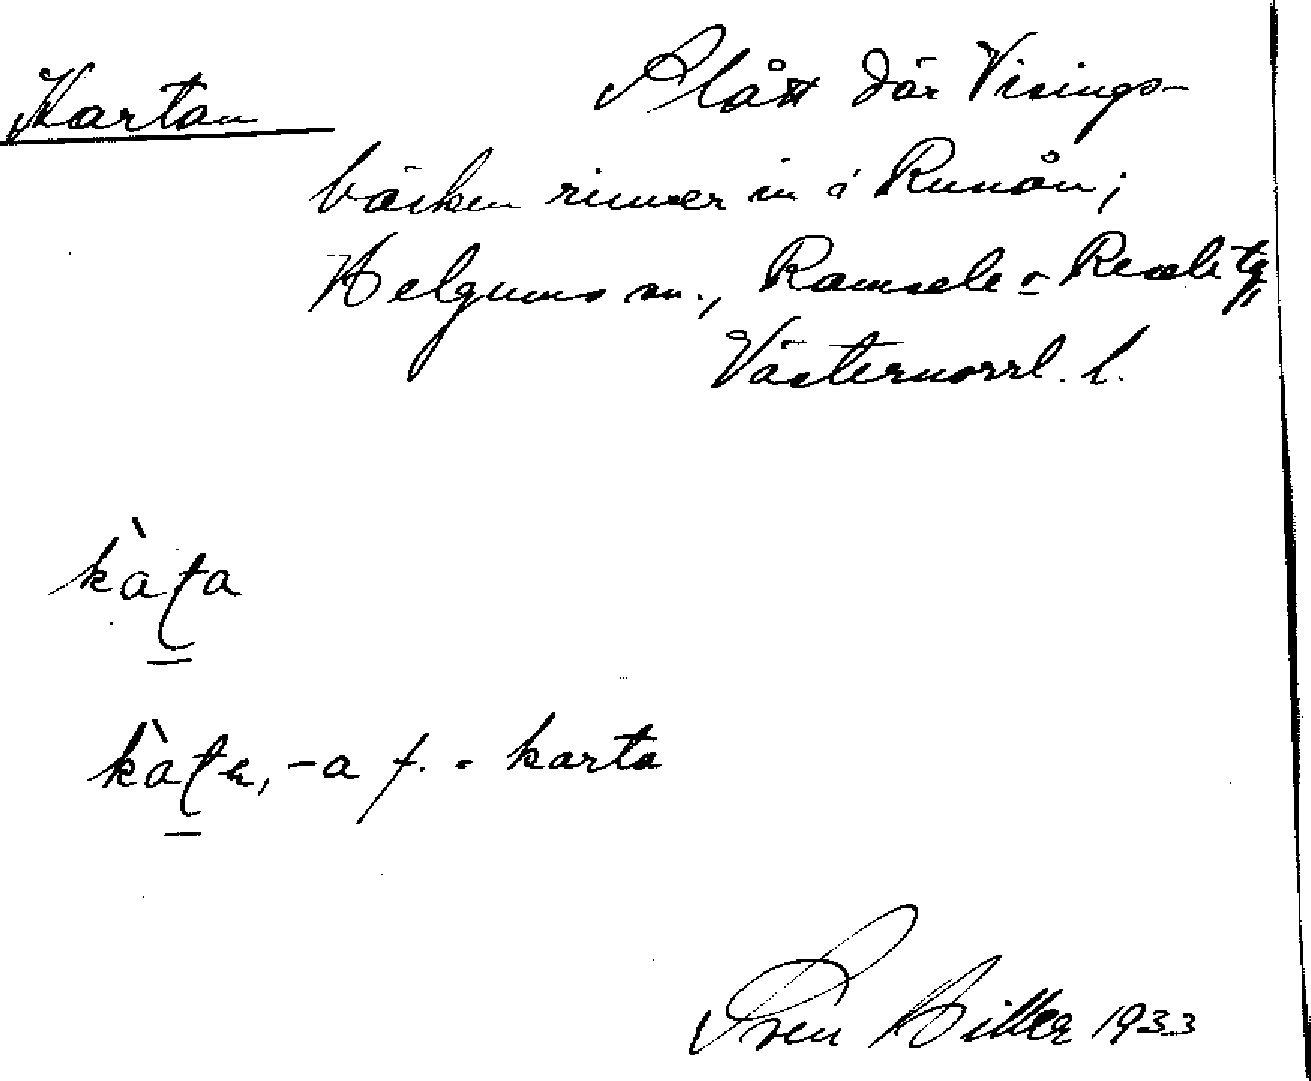 Kartan Slått där Visings-
bäcken rinner in i Runån;
Helgums sn., Ramsele o Resele tg
Västernorrl. l.
kàʈa
kàʈa, -a f. = karta
Sven Hiller 1933